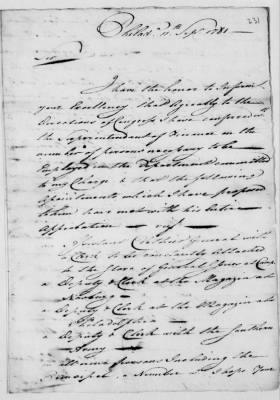 231
Philadᵃ 11th Sept 1781
Sir
I have the honor to Inform
your Excellency that Agreeably to the
directions of Congress I have conferred with
the Superintendent of Finance on the
number of persons necessary to be
Employed in the Department committed
to my Charge & that the following
appointments which I have proposed
to him have met with his entire
Approbation viz
Clerk to be constantly attached
to the
a Deputy & Clerk at the Magazin at
Newburg
a Deputy & Clerk at the Magazin at
Philadelphia
a Deputy & Clerk with the Southern
Army
persons Including the
a Number I hope your